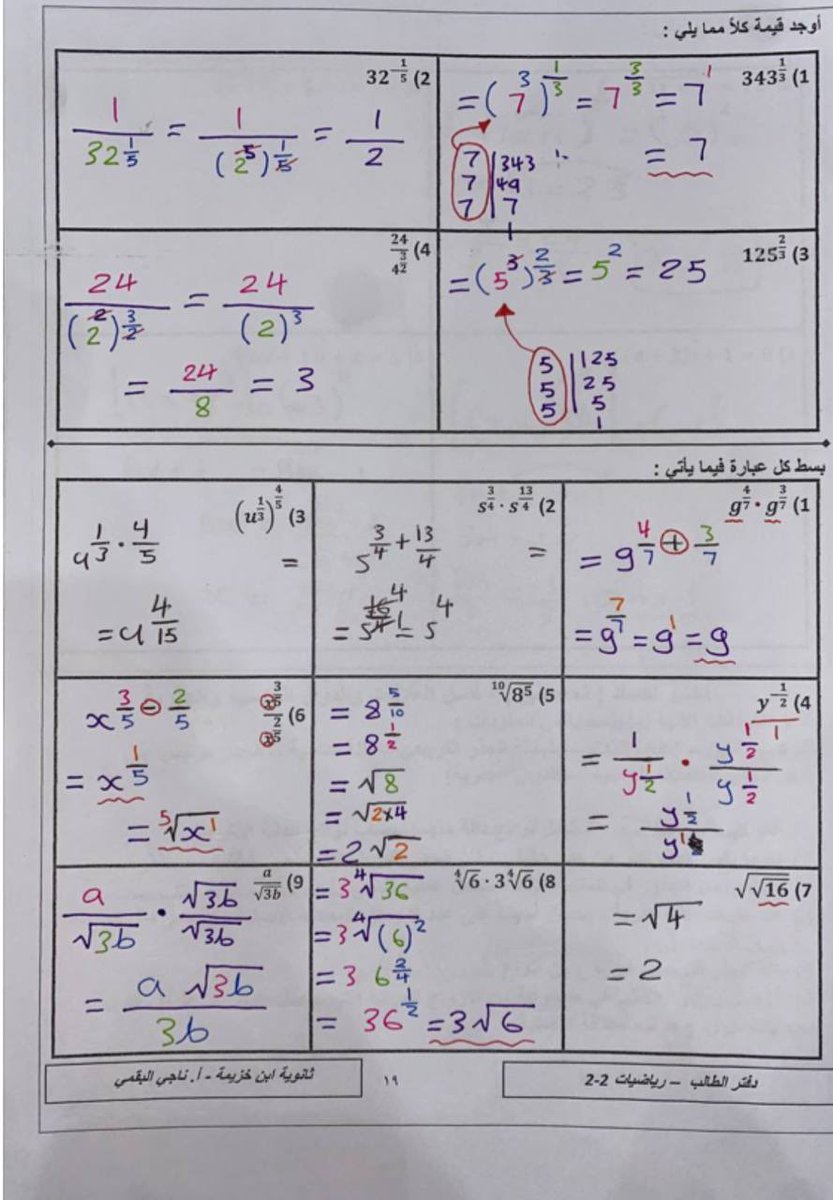 أوجد قيمة كلاً مما يلي :
343^{1/3} (1
= (7^3)^{1/3} = 7^{3/3} = 7^1
= 7
7 | 343
7 | 49
7 | 7
1
32^{-1/5} (2
1/32^{1/5} = 1/(2^5)^{1/5} = 1/2
125^{2/3} (3
= (5^3)^{2/3} = 5^2 = 25
5 | 125
5 | 25
5 | 5
1
24/4^{3/2} (4
24/(2^2)^{3/2} = 24/(2)^3
= 24/8 = 3
بسط كل عبارة فيما يأتي :
g^{4/7} · g^{3/7} (1
= g^{4/7 + 3/7}
= g^{7/7} = g^1 = g
s^{3/4} · s^{13/4} (2
=
s^{3/4 + 13/4}
= s^{16/4} = s^4
(u^{1/3})^{4/5} (3
=
u^{1/3 · 4/5}
= u^{4/15}
y^{-1/2} (4
1
= 1/y^{1/2} · y^{1/2}/y^{1/2}
= y^{1/2}/y^1
¹⁰√8^5 (5
= 8^{5/10}
= 8^{1/2}
= √8
= √2×4
= 2√2
x^{3/5}/x^{2/5} (6
x^{3/5 - 2/5}
= x^{1/5}
= ⁵√x^1
√√16 (7
= √4
= 2
⁴√6 · 3⁴√6 (8
= 3 ⁴√36
= 3 ⁴√(6)^2
= 3 6^{2/4}
= 36^{1/2} = 3√6
a/√3b (9
a/√3b · √3b/√3b
= a √3b/3b
دفتر الطالب – رياضيات 2-2
١٩
ثانوية ابن خزيمة - أ. ناجي البقمي